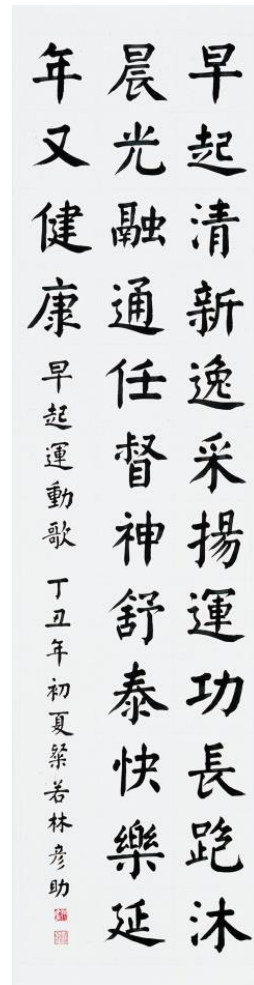 早起清新逸采揚運功長跑沐
晨光融通任督神舒泰快樂延
年又健康 早起運動歌 丁丑年初夏粲若林彥助